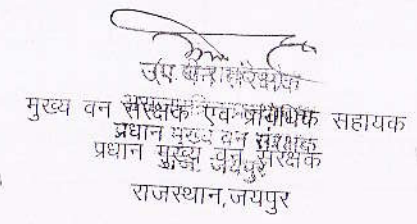 उप वन संरक्षक
मुख्य वन संरक्षक एवं प्राविधिक सहायक
प्रधान मुख्य वन संरक्षक
प्रधान मुख्य वन संरक्षक
राज. जयपुर
राजस्थान,जयपुर